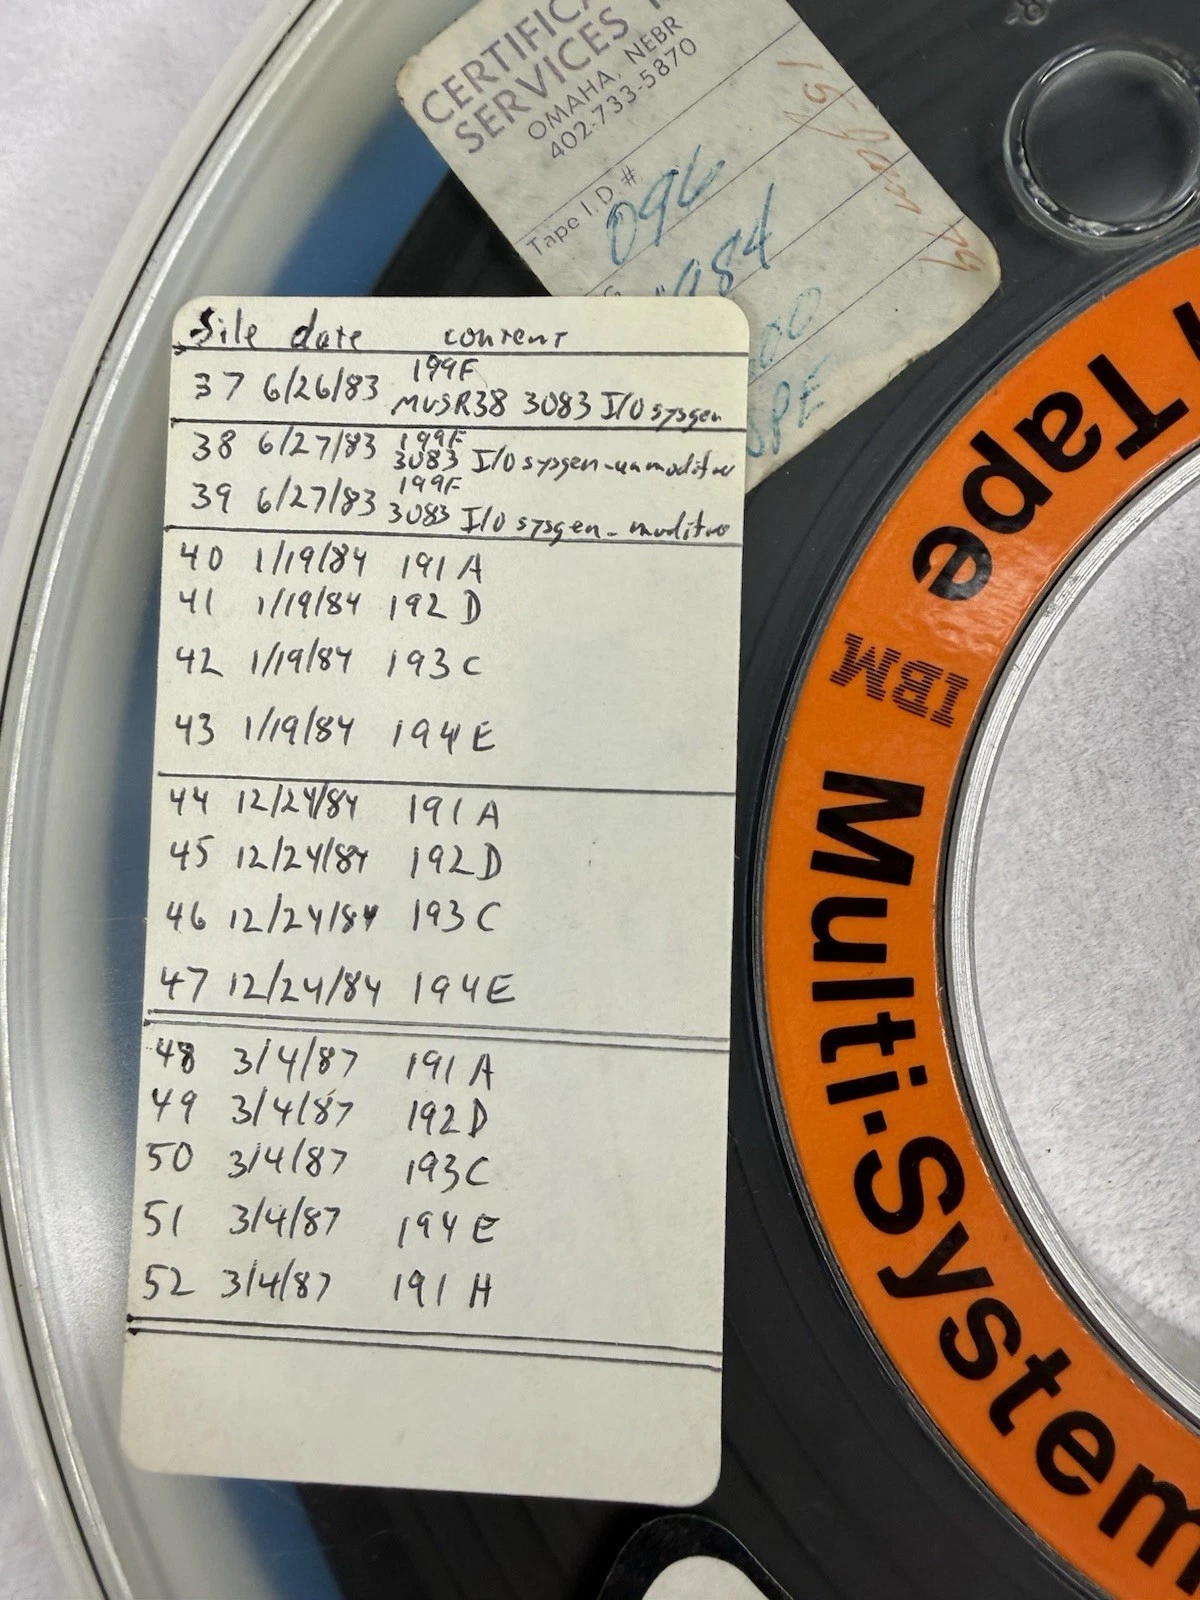 CERTIFICA
SERVICES
OMAHA, NEBR
402-733-5870
15 Jan 79
Tape I.D. #
096
084
00
PE
file date content
37 6/26/83 199F
MVSR38 3083 I/O sysgen
38 6/27/83 199F
3083 I/O sysgen-unmodified
39 6/27/83 199F
3083 I/O sysgen-modified
40 1/19/84 191 A
41 1/19/84 192 D
42 1/19/84 193 C
43 1/19/84 194 E
44 12/24/84 191 A
45 12/24/84 192 D
46 12/24/84 193 C
47 12/24/84 194 E
48 3/4/87 191 A
49 3/4/87 192 D
50 3/4/87 193 C
51 3/4/87 194 E
52 3/4/87 191 H
Multi-System
IBM
Tape